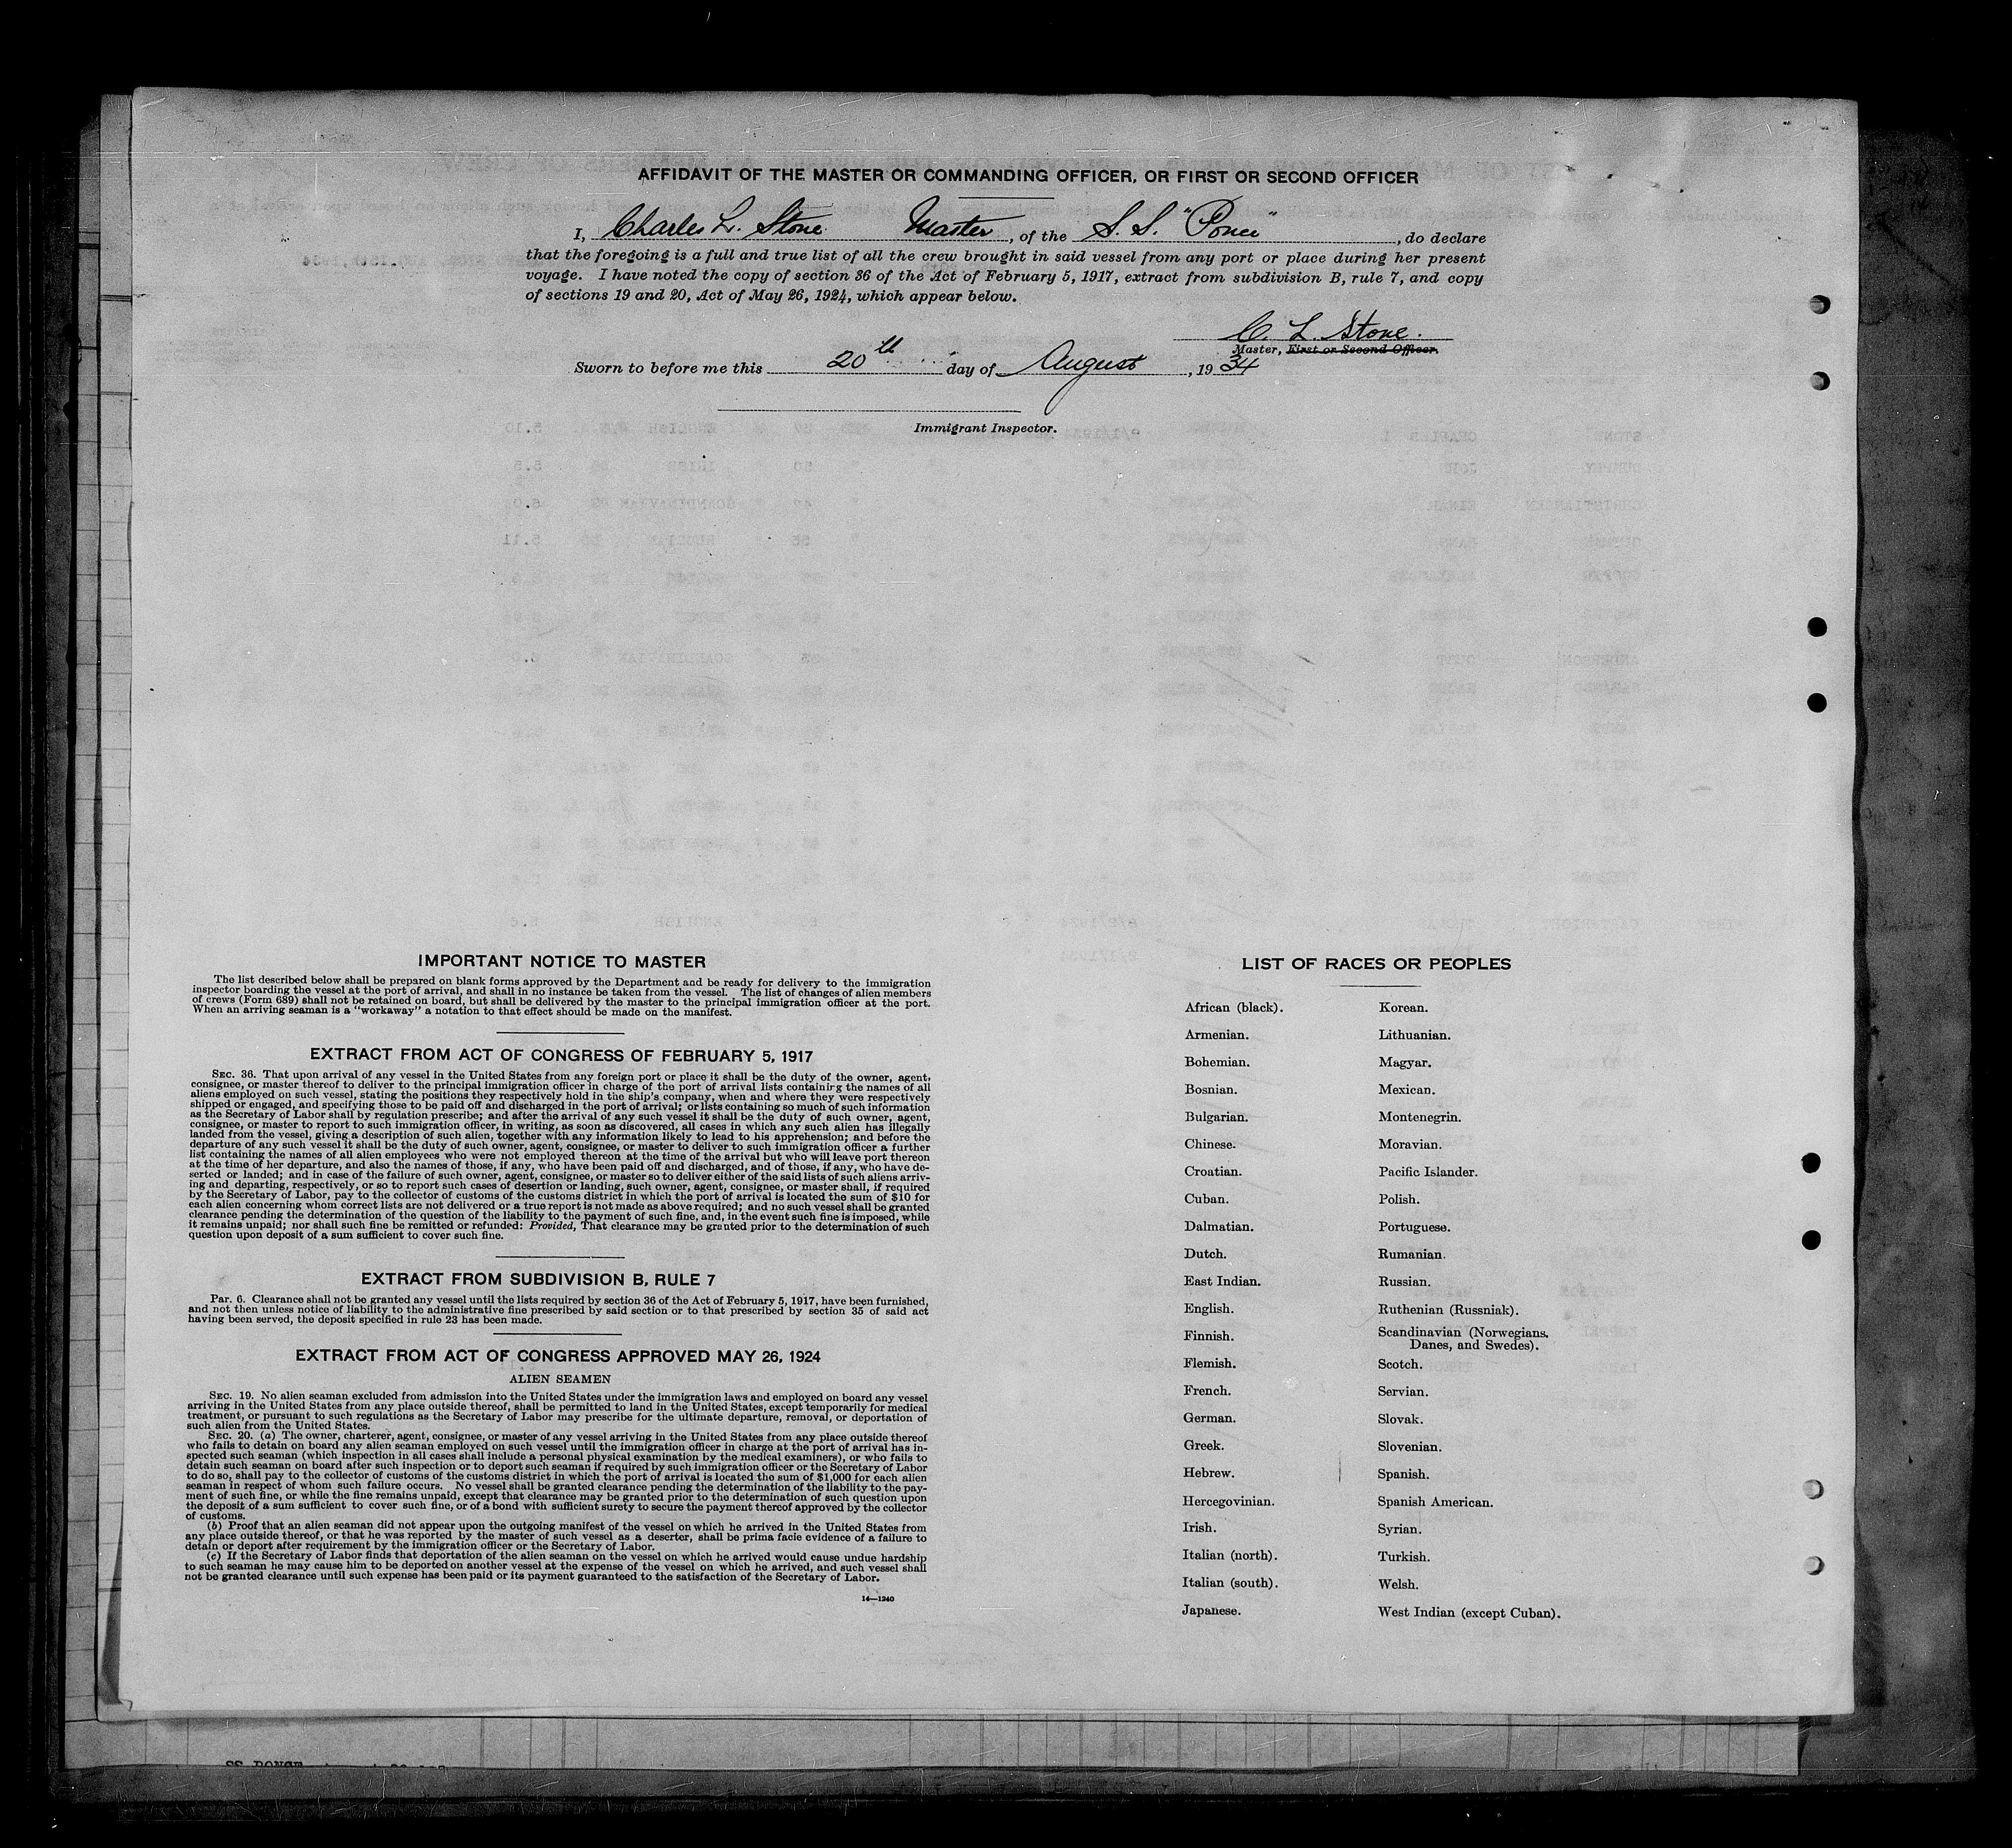 AFFIDAVIT OF THE MASTER OR COMMANDING OFFICER, OR FIRST OR SECOND OFFICER
I, Charles L. Stone Master, of the S. S. "Ponce", do declare
that the foregoing is a full and true list of all the crew brought in said vessel from any port or place during her present
voyage. I have noted the copy of section 36 of the Act of February 5, 1917, extract from subdivision B, rule 7, and copy
of sections 19 and 20, Act of May 26, 1924, which appear below.
C. L. Stone.
Master, First or Second Officer.
Sworn to before me this 20th day of August, 1934
Immigrant Inspector.
IMPORTANT NOTICE TO MASTER
The list described below shall be prepared on blank forms approved by the Department and be ready for delivery to the immigration
inspector boarding the vessel at the port of arrival, and shall in no instance be taken from the vessel. The list of changes of alien members
of crews (Form 689) shall not be retained on board, but shall be delivered by the master to the principal immigration officer at the port.
When an arriving seaman is a "workaway" a notation to that effect should be made on the manifest.
EXTRACT FROM ACT OF CONGRESS OF FEBRUARY 5, 1917
SEC. 36. That upon arrival of any vessel in the United States from any foreign port or place it shall be the duty of the owner, agent,
consignee, or master thereof to deliver to the principal immigration officer in charge of the port of arrival lists containing the names of all
aliens employed on such vessel, stating the positions they respectively hold in the ship's company, when and where they were respectively
shipped or engaged, and specifying those to be paid off and discharged in the port of arrival; or lists containing so much of such information
as the Secretary of Labor shall by regulation prescribe; and after the arrival of any such vessel it shall be the duty of such owner, agent,
consignee, or master to report to such immigration officer, in writing, as soon as discovered, all cases in which any such alien has illegally
landed from the vessel, giving a description of such alien, together with any information likely to lead to his apprehension; and before the
departure of any such vessel it shall be the duty of such owner, agent, consignee, or master to deliver to such immigration officer a further
list containing the names of all alien employees who were not employed thereon at the time of the arrival but who will leave port thereon
at the time of her departure, and also the names of those, if any, who have been paid off and discharged, and of those, if any, who have de-
serted or landed; and in case of the failure of such owner, agent, consignee, or master so to deliver either of the said lists of such aliens arriv-
ing and departing, respectively, or so to report such cases of desertion or landing, such owner, agent, consignee, or master shall, if required
by the Secretary of Labor, pay to the collector of customs of the customs district in which the port of arrival is located the sum of $10 for
each alien concerning whom correct lists are not delivered or a true report is not made as above required; and no such vessel shall be granted
clearance pending the determination of the question of the liability to the payment of such fine, and, in the event such fine is imposed, while
it remains unpaid; nor shall such fine be remitted or refunded: Provided, That clearance may be granted prior to the determination of such
question upon deposit of a sum sufficient to cover such fine.
EXTRACT FROM SUBDIVISION B, RULE 7
Par. 6. Clearance shall not be granted any vessel until the lists required by section 36 of the Act of February 5, 1917, have been furnished,
and not then unless notice of liability to the administrative fine prescribed by said section or to that prescribed by section 35 of said act
having been served, the deposit specified in rule 23 has been made.
EXTRACT FROM ACT OF CONGRESS APPROVED MAY 26, 1924
ALIEN SEAMEN
SEC. 19. No alien seaman excluded from admission into the United States under the immigration laws and employed on board any vessel
arriving in the United States from any place outside thereof, shall be permitted to land in the United States, except temporarily for medical
treatment, or pursuant to such regulations as the Secretary of Labor may prescribe for the ultimate departure, removal, or deportation of
such alien from the United States.
SEC. 20. (a) The owner, charterer, agent, consignee, or master of any vessel arriving in the United States from any place outside thereof
who fails to detain on board any alien seaman employed on such vessel until the immigration officer in charge at the port of arrival has in-
spected such seaman (which inspection in all cases shall include a personal physical examination by the medical examiners), or who fails to
detain such seaman on board after such inspection or to deport such seaman if required by such immigration officer or the Secretary of Labor
to do so, shall pay to the collector of customs of the customs district in which the port of arrival is located the sum of $1,000 for each alien
seaman in respect of whom such failure occurs. No vessel shall be granted clearance pending the determination of the liability to the pay-
ment of such fine, or while the fine remains unpaid, except that clearance may be granted prior to the determination of such question upon
the deposit of a sum sufficient to cover such fine, or of a bond with sufficient surety to secure the payment thereof approved by the collector
of customs.
(b) Proof that an alien seaman did not appear upon the outgoing manifest of the vessel on which he arrived in the United States from
any place outside thereof, or that he was reported by the master of such vessel as a deserter, shall be prima facie evidence of a failure to
detain or deport after requirement by the immigration officer or the Secretary of Labor.
(c) If the Secretary of Labor finds that deportation of the alien seaman on the vessel on which he arrived would cause undue hardship
to such seaman he may cause him to be deported on another vessel at the expense of the vessel on which he arrived, and such vessel shall
not be granted clearance until such expense has been paid or its payment guaranteed to the satisfaction of the Secretary of Labor.
14—1240
LIST OF RACES OR PEOPLES
African (black).
Armenian.
Bohemian.
Bosnian.
Bulgarian.
Chinese.
Croatian.
Cuban.
Dalmatian.
Dutch.
East Indian.
English.
Finnish.
Flemish.
French.
German.
Greek.
Hebrew.
Hercegovinian.
Irish.
Italian (north).
Italian (south).
Japanese.
Korean.
Lithuanian.
Magyar.
Mexican.
Montenegrin.
Moravian.
Pacific Islander.
Polish.
Portuguese.
Rumanian.
Russian.
Ruthenian (Russniak).
Scandinavian (Norwegians,
Danes, and Swedes).
Scotch.
Servian.
Slovak.
Slovenian.
Spanish.
Spanish American.
Syrian.
Turkish.
Welsh.
West Indian (except Cuban).